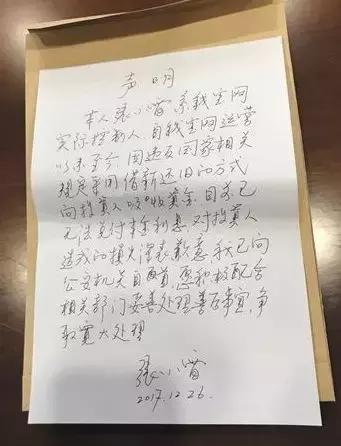 声明
本人张小雷系钱宝网
实际控制人,自钱宝网运营
以来至今因违反国家相关
规定采用借新还旧的方式
向投资人吸收资金。目前已
无法兑付本金利息,对投资人
造成的损失深表歉意,我已向
公安机关自首,愿积极配合
相关部门妥善处理善后事宜,争
取宽大处理
张小雷
2017.12.26.